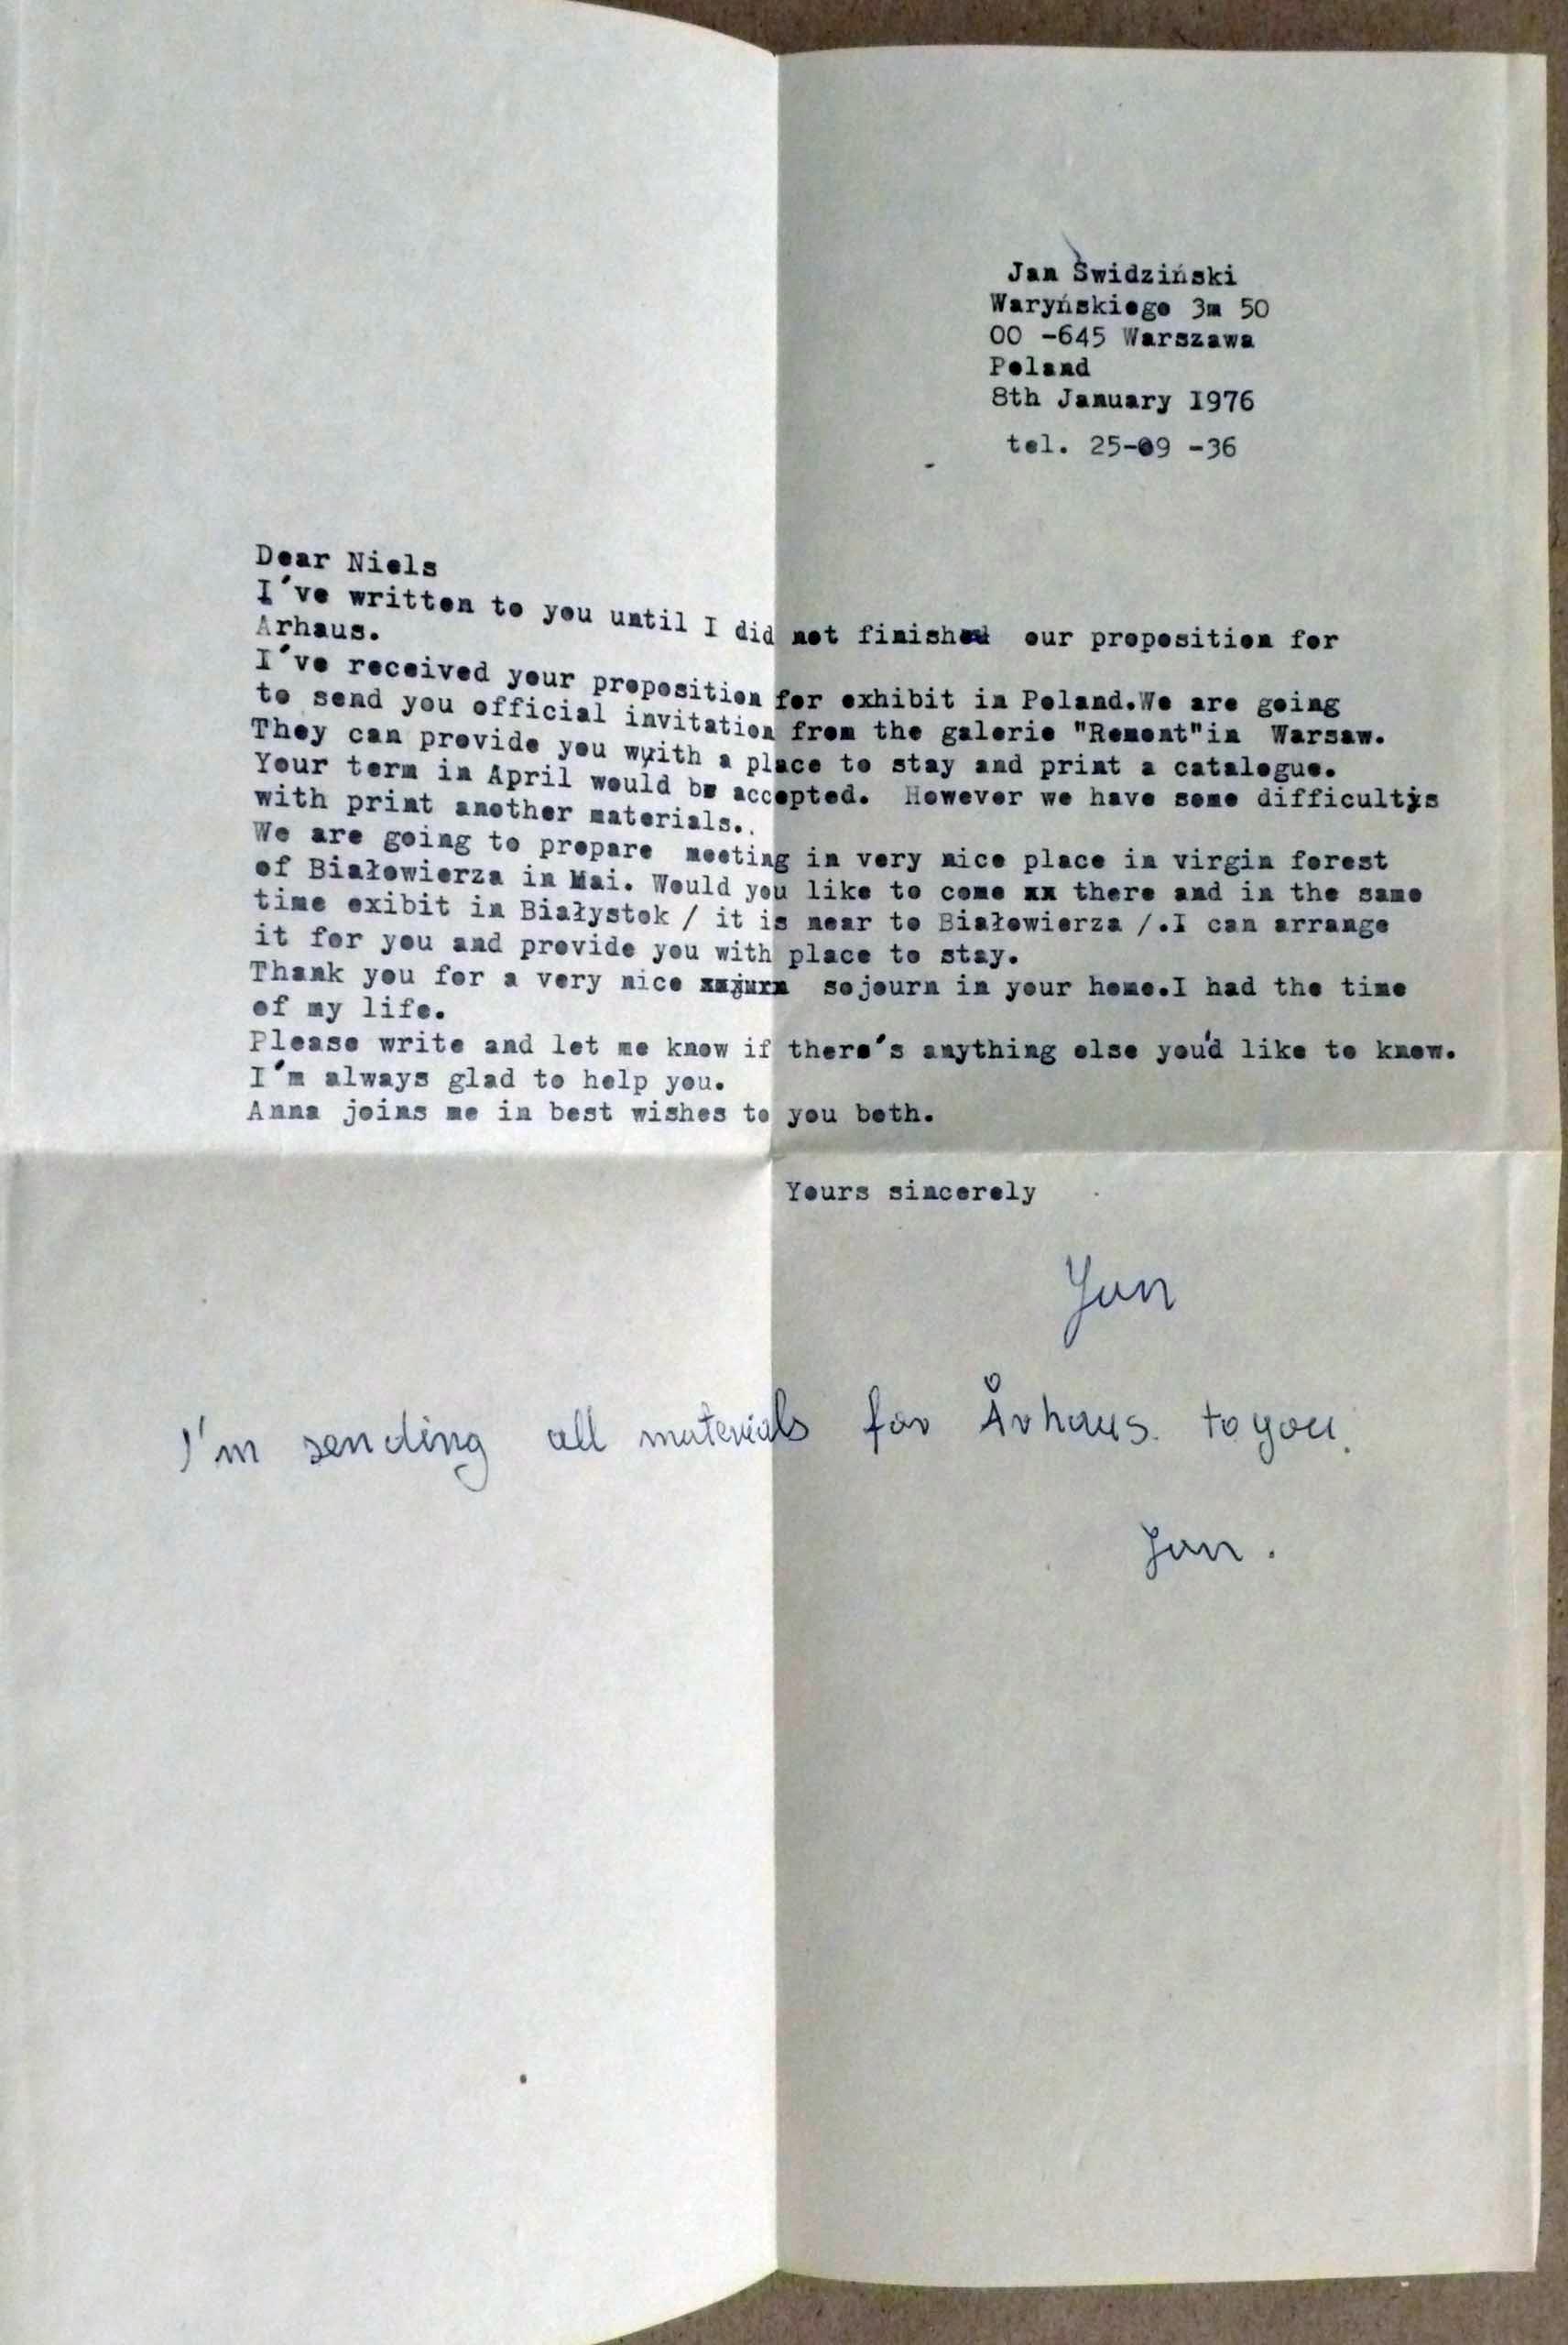 Jan Świdziński
Waryńskiego 3m 50
00 -645 Warszawa
Poland
8th January 1976
tel. 25-09 -36
Dear Niels
I´ve written to you until I did not finished our proposition for
Arhaus.
I´ve received your proposition for exhibit in Poland.We are going
to send you official invitation from the galerie "Remont"in Warsaw.
They can provide you wyith a place to stay and print a catalogue.
Your term in April would be accepted. However we have some difficultys
with print another materials..
We are going to prepare meeting in very nice place in virgin forest
of Białowierza in Mai. Would you like to come xx there and in the same
time exibit in Białystok / it is near to Białowierza /.I can arrange
it for you and provide you with place to stay.
Thank you for a very nice sojourn in your home.I had the time
of my life.
Please write and let me know if there´s anything else you'd like to know.
I´m always glad to help you.
Anna joins me in best wishes to you both.
Yours sincerely
Jan
I'm sending all materials for Århaus. to you.
Jan.